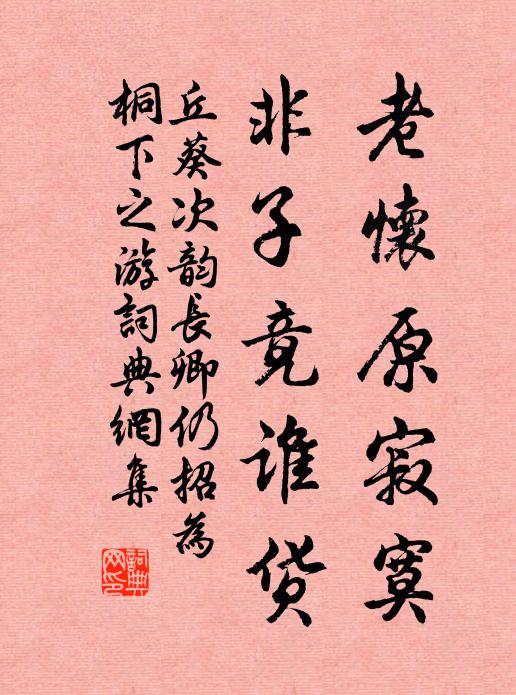 老懷原寂寞
非子竟誰貨
丘葵次韵長卿仍招為
桐下之游詞典網集
詞典網印